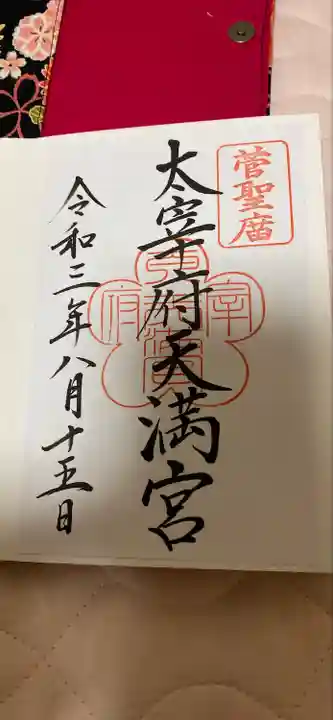 菅聖庿
太宰府天満宮
令和三年八月十五日